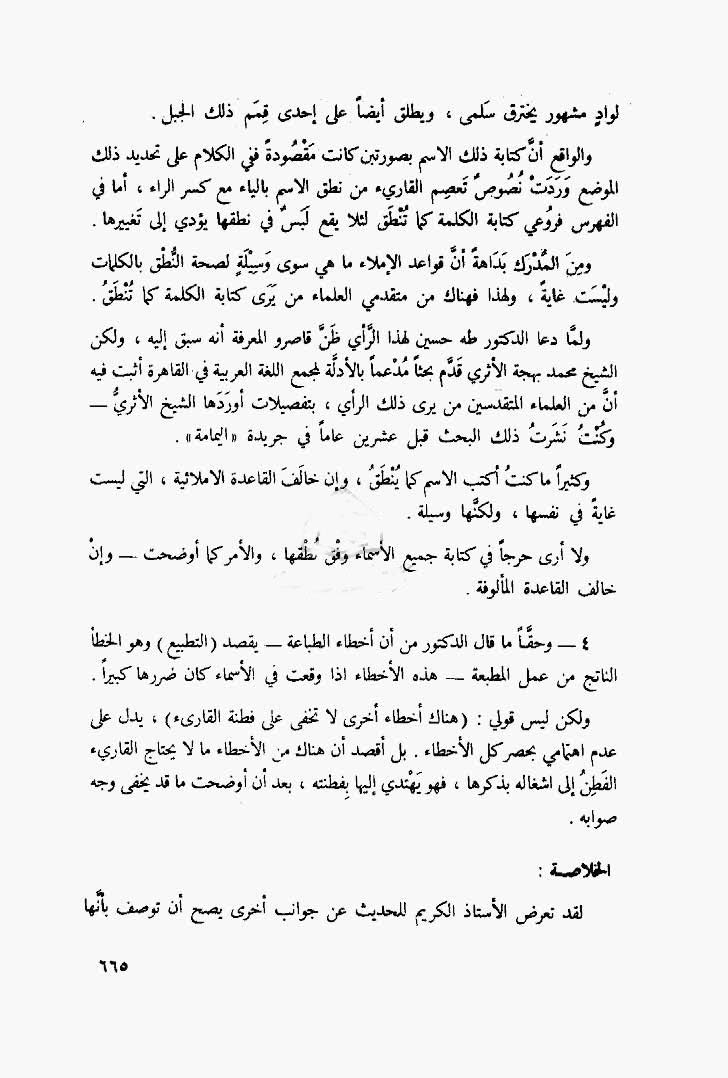 لوادٍ مشهور يخترق سَلمى ، ويطلق أيضاً على إحدى قِمَم ذلك الجبل .
والواقع أنَّ كتابة ذلك الاسم بصورتين كانت مَقْصُودةً ففي الكلام على تحديد ذلك
الموضع وَرَدَتْ نُصُوصٌ تَعصِم القاريء من نطق الاسم بالياء مع كسر الراء ، أما في
الفهرس فروُعي كتابة الكلمة كما تُنْطَق لئلا يقع لَبَسٌ في نطقها يؤدي إلى تَغييرها .
ومِنَ المُدْرَك بَدَاهةً أنَّ قواعد الإملاء ما هي سوى وَسِيْلَةٍ لصحة النُّطْق بالكلمات
وليْسَت غايةً ، ولهذا فهناك من متقدمي العلماء من يَرَى كتابة الكلمة كما تُنْطَقُ .
ولمَّا دعا الدكتور طه حسين لهذا الرَّأي ظَنَّ قاصرو المعرفة أنه سبق إليه ، ولكن
الشيخ محمد بهجة الأثري قدَّم بحثاً مُدْعماً بالأدلَّة لمجمع اللغة العربية في القاهرة أثبت فيه
أنَّ من العلماء المتقدسين من يرى ذلك الرأي ، بتفصيلات أورَدَها الشيخ الأثريُّ —
وكُنْتُ نَشَرتُ ذلك البحث قبل عشرين عاماً في جريدة «اليمامة» .
وكثيراً ما كنتُ أكتب الاسم كما يُنْطَقُ ، وإن خالَفَ القاعدة الاملائية ، التي ليست
غايةً في نفسها ، ولكنَّها وسيلة .
ولا أرى حرجاً في كتابة جميع الأسماء وفْق نُطْقها ، والأمر كما أوضحت — وإنْ
خالف القاعدة المألوفة .
٤ — وحقَّاً ما قال الدكتور من أن أخطاء الطباعة — يقصد (التطبيع) وهو الخطأ
الناتج من عمل المطبعة — هذه الأخطاء اذا وقعت في الأسماء كان ضررها كبيراً .
ولكن ليس قولي : (هناك أخطاء أخرى لا تخفى على فطنة القارىء) ، يدل على
عدم اهتمامي بحصر كل الأخطاء . بل أقصد أن هناك من الأخطاء ما لا يحتاج القاريء
الفَطِنُ إلى اشغاله بذكرها ، فهو يَهْتدي إليها بِفطنته ، بعد أن أوضحت ما قد يخفى وجه
صوابه .
الخلاصة :
لقد تعرض الأستاذ الكريم للحديث عن جوانب أخرى يصح أن توصف بأنَّها
٦٦٥